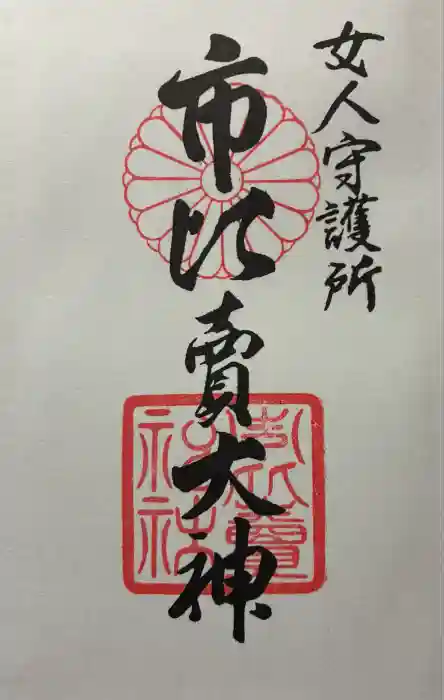 女人守護所
市比賣大神
市比賣
神社